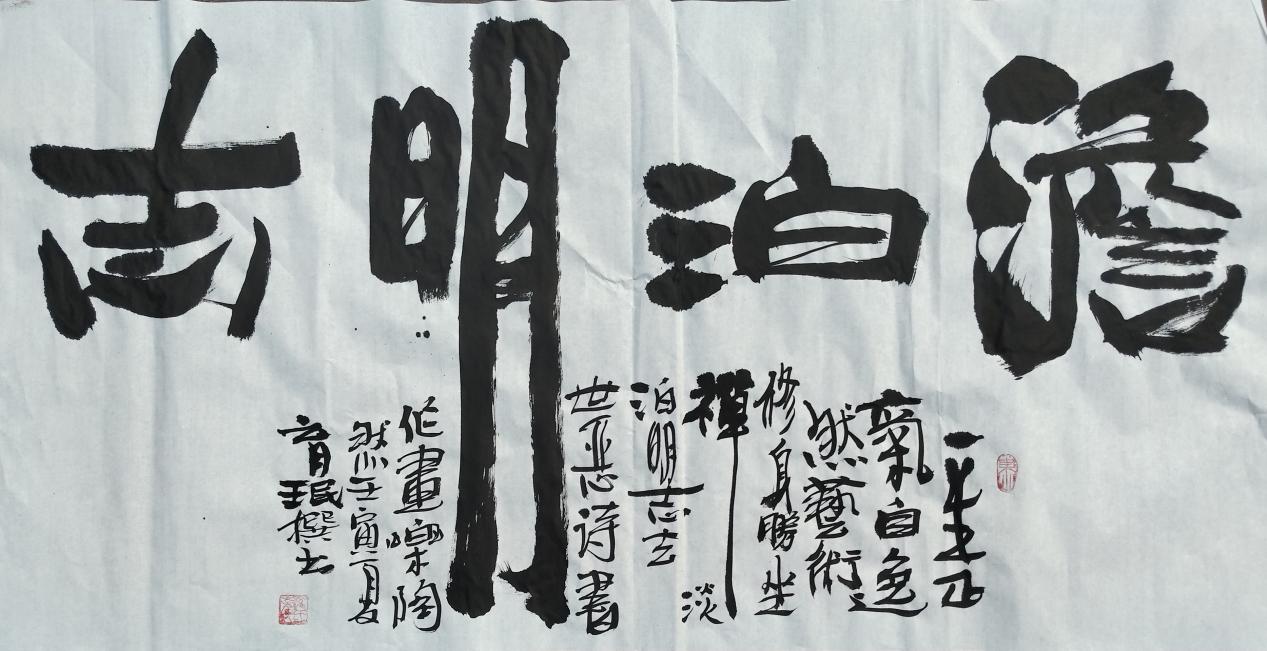 澹泊明志
一身正
氣自逸
然藝術
修身勝坐
禪淡
泊明志去
世惡詩書
作畫樂陶
然壬寅夏
育珉撰书